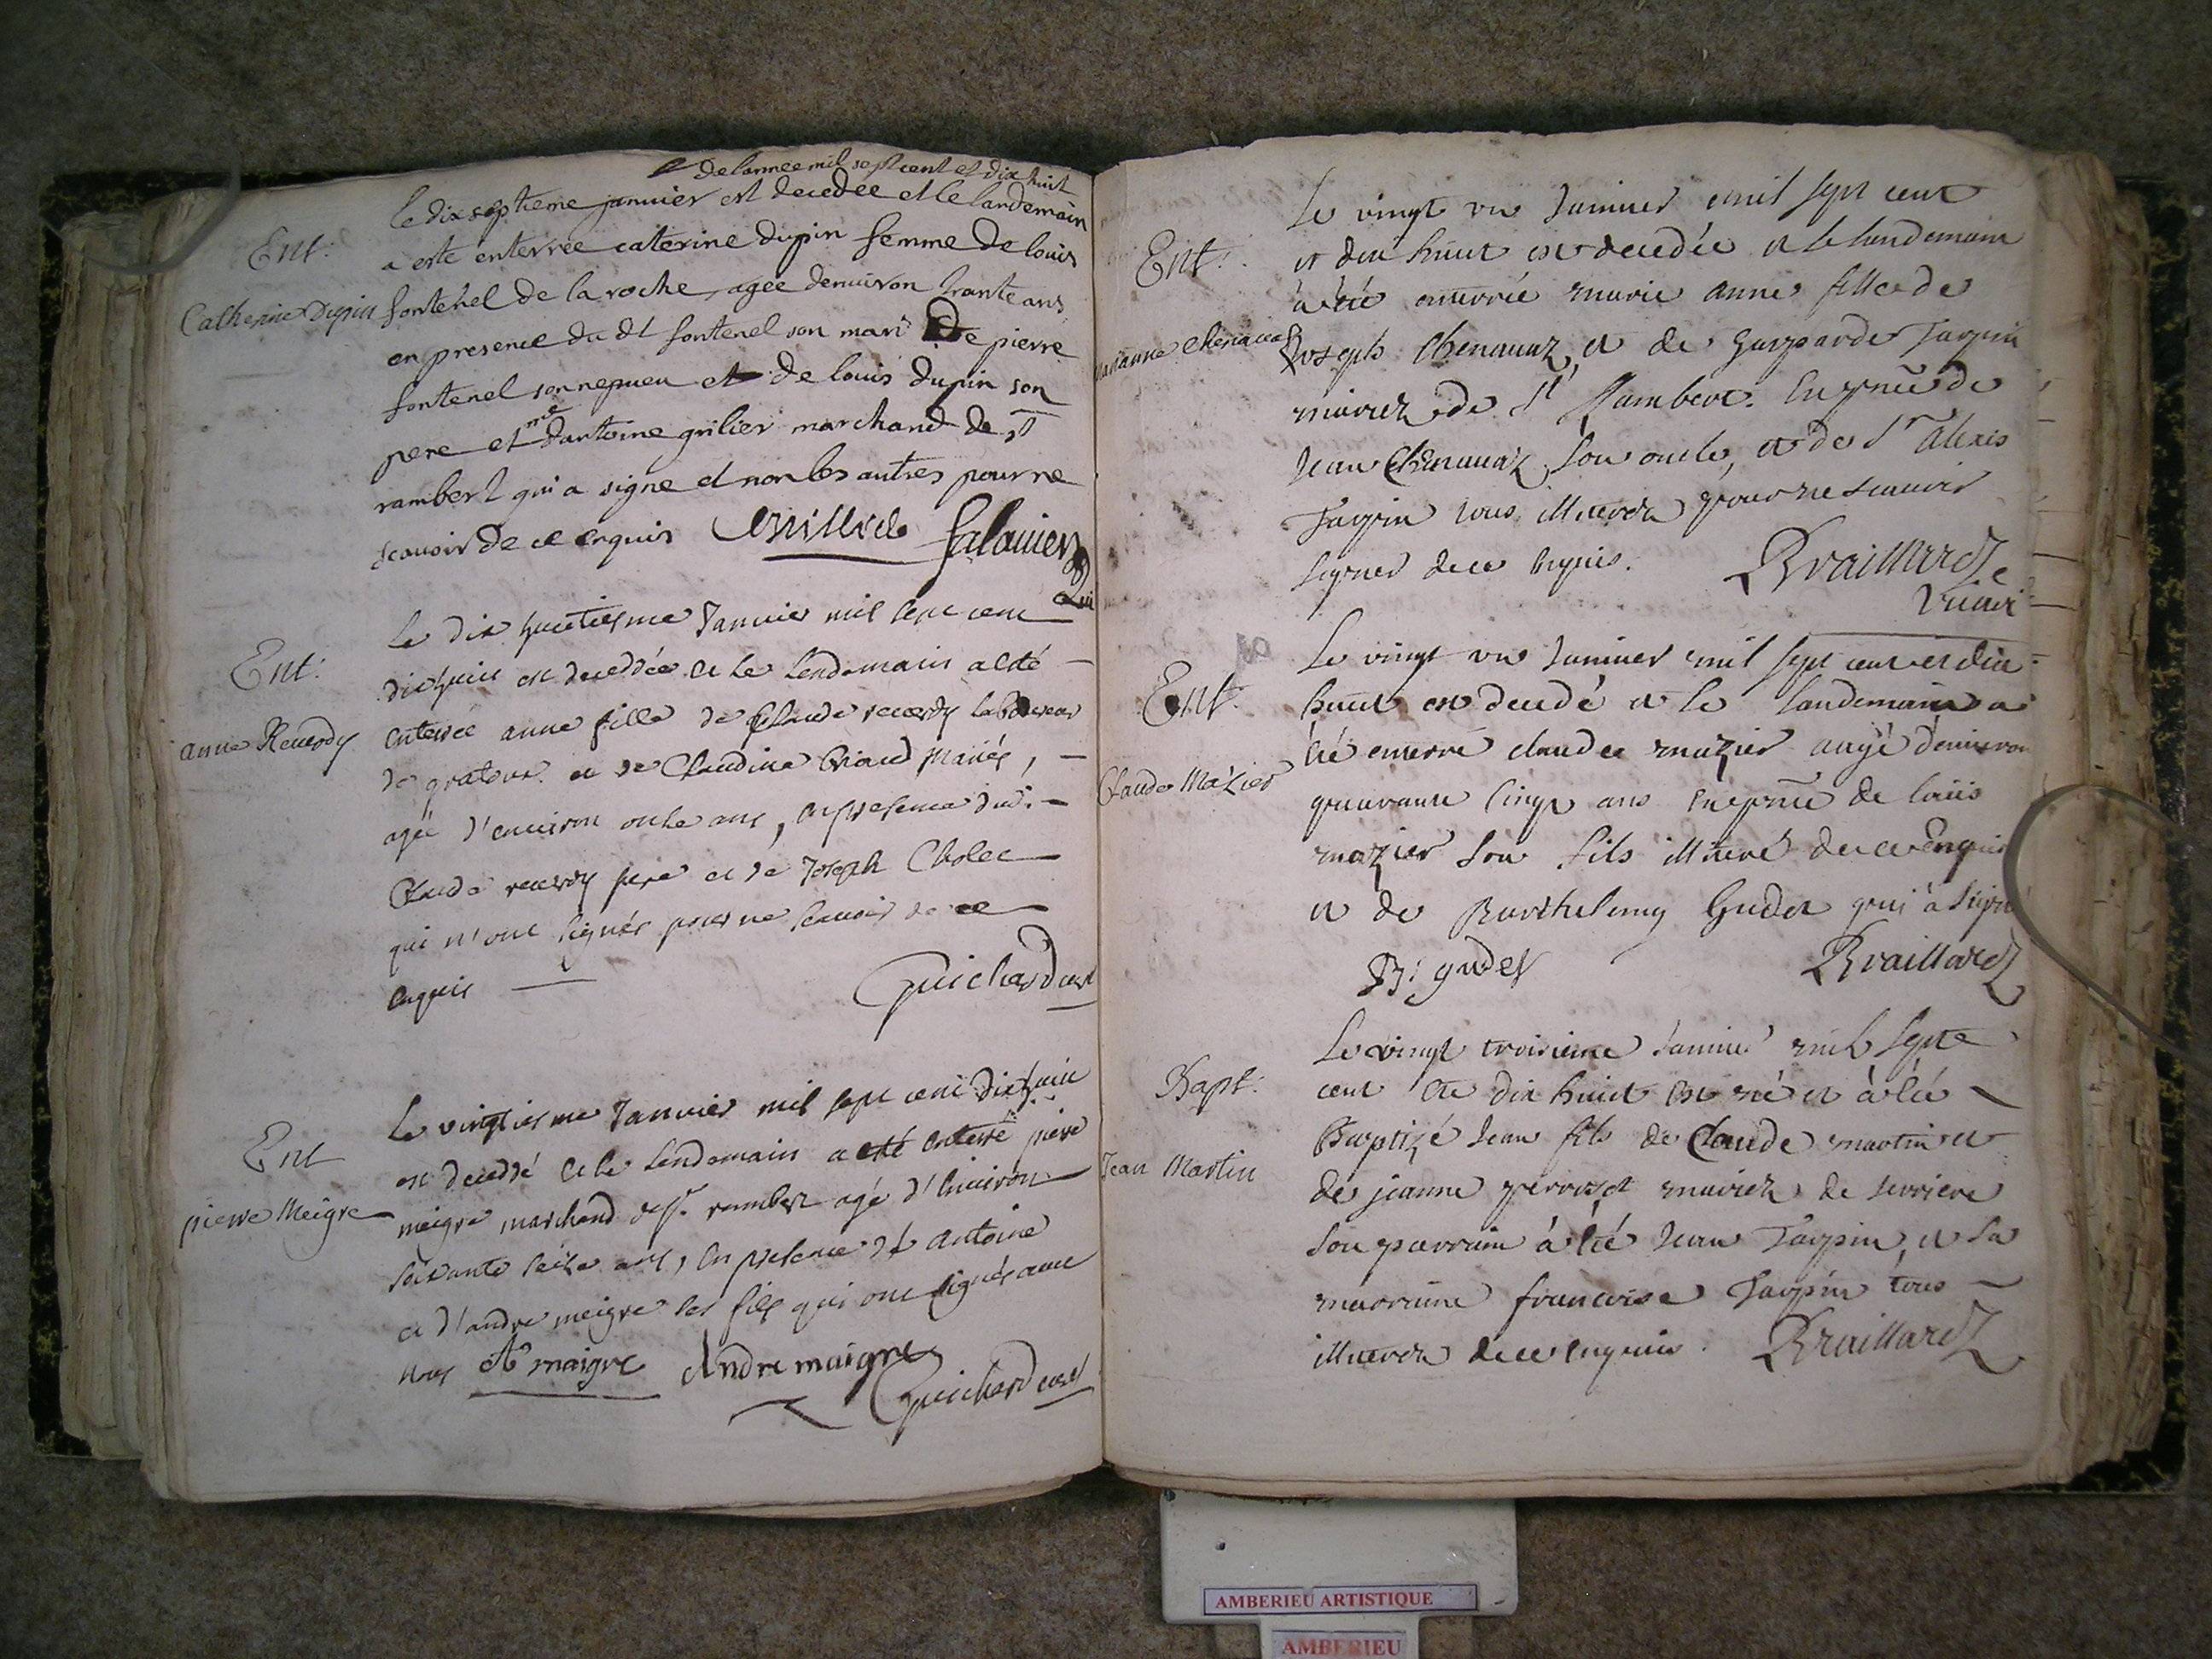 de lannee mil sept cent et dix huit
le dix septieme janvier est decedée et le landemain
Ent:
a esté enterrée caterine dupin femme de louis
Catherine Dupin
fontenel de la roche, agée denuiron trante ans
en presence du dt fontenel son mari de pierre
fontenel son nepueu et de louis dupin son
pere et me dantoine grilier marchand de st
rambert qui a signe et non les autres pour ne
scauoir de ce enquis
Le dix huictiesme Januier mil sept cent
Ent:
dixhuict est decedée et le lendemain a esté
enterrée anne fille de Claude reuerdy laboureur
anne Reuerdy
de
et de Claudine Briand mariés,
agée d'enuiron onze ans, en presence dudi.
Claude reuerdy pere et de Joseph Cholet
qui n'ont signés pour ne scauoir de ce
enquis
Guichard curé
Le vingtiesme Januier mil sept cent dixhuict
Ent
est decedé et le lendemain a esté enterré pierre
pierre Meigre
meigre marchand de st. rambert agé d'enuiron
soixante seize ans, en presence de antoine
et d'andre meigre ses fils qui ont signés auec
nous A maigre Andre maigre
Guichard curé
Le vingt un Januier mil sept cent
Ent:
et dix huict est decedée et le landemain
a été enterrée marie anne fille de
marianne Chenauaz
Joseph Chenauaz, et de Gasparde Tarpin
mariez de St Rambert. En pnce de
Jean Chenauaz son oncle, et de Sr Alexis
Tarpin tous illiterez pour ne scauoir
signer de ce enquis.
Braillard
Vicaire
Le vingt un Januier mil sept cent et dix
Ent:
huict est decedé et le landemain a
été enterré claude mazier aagé d'enuiron
Claude Mazier
quarante cinq ans en pnce de loüis
mazier son fils illiteré de ce enquis
et de Barthelemy Gudet qui a signé
B: gudet Braillard
Le vingt troisieme Januier mil sept
Bapt:
cent et dix huict est né et à été
Baptizé Jean fils de Claude martin et
Jean Martin
de jeanne perroset mariez de serriere
son parrain à été Jean Tarpin, et sa
marraine francoise Tarpin tous
illiterez de ce enquis. Braillard
AMBERIEU ARTISTIQUE
AMBERIEU